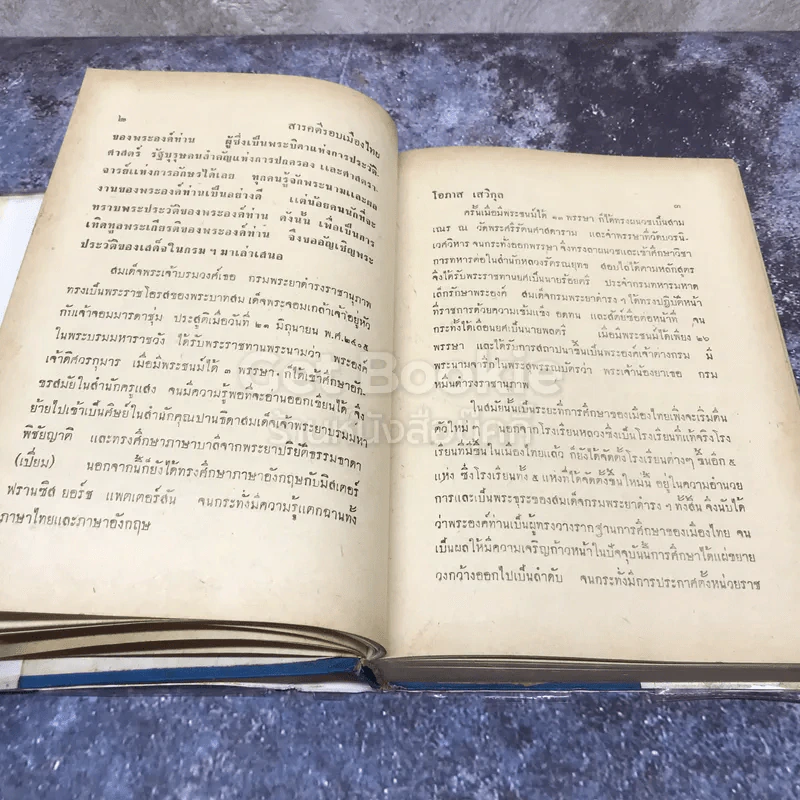 ๒
สารคดีรอบเมืองไทย
ของพระองค์ท่าน ผู้ซึ่งเป็นพระบิดาแห่งการประวัติ-
ศาสตร์ รัฐบุรุษคนสำคัญแห่งการปกครอง และศาสตรา-
จารย์แห่งการอักษรได้เลย ทุกคนรู้จักพระนามและผล
งานของพระองค์ท่านเป็นอย่างดี แต่น้อยคนนักที่จะ
ทราบพระประวัติของพระองค์ท่าน ดังนั้น เพื่อเป็นการ
เทิดทูลพระเกียรติของพระองค์ท่าน จึงขออัญเชิญพระ
ประวัติของเสด็จในกรมฯ มาเล่าเสนอ
สมเด็จพระเจ้าบรมวงศ์เธอ กรมพระยาดำรงราชานุภาพ
ทรงเป็นพระราชโอรสของพระบาทสมเด็จพระจอมเกล้าเจ้าอยู่หัว
กับเจ้าจอมมารดาชุ่ม ประสูติเมื่อวันที่ ๒๑ มิถุนายน พ.ศ. ๒๔๐๕
ในพระบรมมหาราชวัง ได้รับพระราชทานพระนามว่า พระองค์
เจ้าดิศวรกุมาร เมื่อมีพระชนม์ได้ ๓ พรรษา ก็ได้เข้าศึกษาอัก-
ขรสมัยในสำนักครูแสง จนมีความรู้พอที่จะอ่านออกเขียนได้ จึง
ย้ายไปเข้าเป็นศิษย์ในสำนักคุณปานธิดาสมเด็จเจ้าพระยาบรมมหา
พิชัยญาติ และทรงศึกษาภาษาบาลีจากพระยาปริยัติธรรมธาดา
(เปี่ยม) นอกจากนั้นก็ยังได้ทรงศึกษาภาษาอังกฤษกับมิสเตอร์
ฟรานซิส ยอร์ช แพตเตอร์สัน จนกระทั่งมีความรู้แตกฉานทั้ง
ภาษาไทยและภาษาอังกฤษ
โอภาส เสวิกุล
๓
ครั้นเมื่อมีพระชนม์ได้ ๑๓ พรรษา ก็ได้ทรงผนวชเป็นสาม
เณร ณ วัดพระศรีรัตนศาสดาราม และจำพรรษาที่วัดบวรนิ-
เวศวิหาร จนกระทั่งออกพรรษา จึงทรงลาผนวชและเข้าศึกษาวิชา
การทหารต่อในสำนักหลวงรัตรณยุทธ สอบไล่ได้ตามหลักสูตร
จึงได้รับพระราชทานยศเป็นนายร้อยตรี ประจำกรมทหารมหาด
เล็กรักษาพระองค์ สมเด็จกรมพระยาดำรงฯ ได้ทรงปฏิบัติหน้า
ที่ราชการด้วยความเข้มแข็ง อดทน และสัตย์ซื่อต่อหน้าที่ จน
กระทั่งได้เลื่อนยศเป็นนายพลตรี เมื่อมีพระชนม์ได้เพียง ๒๖
พรรษา และได้รับการสถาปนาขึ้นเป็นพระองค์เจ้าต่างกรม มี
พระนามจารึกในพระสุพรรณบัตรว่า พระเจ้าน้องยาเธอ กรม
หมื่นดำรงราชานุภาพ
ในสมัยนั้นเป็นระยะที่การศึกษาของเมืองไทยเพิ่งจะเริ่มตื่น
ตัวใหม่ๆ นอกจากโรงเรียนหลวงซึ่งเป็นโรงเรียนที่แท้จริงโรง
เรียนที่มีขึ้นในเมืองไทยแล้ว ก็ยังได้จัดตั้งโรงเรียนต่างๆ ขึ้นอีก ๕
แห่ง ซึ่งโรงเรียนทั้ง ๕ แห่งที่ได้จัดตั้งขึ้นใหม่นี้ อยู่ในความอำนวย
การและเป็นพระธุระของสมเด็จกรมพระยาดำรงฯ ทั้งสิ้น จึงนับได้
ว่าพระองค์ท่านเป็นผู้ทรงวางรากฐานการศึกษาของเมืองไทย จน
เป็นผลให้มีความเจริญก้าวหน้าในปัจจุบันนี้การศึกษาได้แผ่ขยาย
วงกว้างออกไปเป็นลำดับ จนกระทั่งมีการประกาศตั้งหน่วยราช
Get Bookie
ร้านหนังสือเก็ท